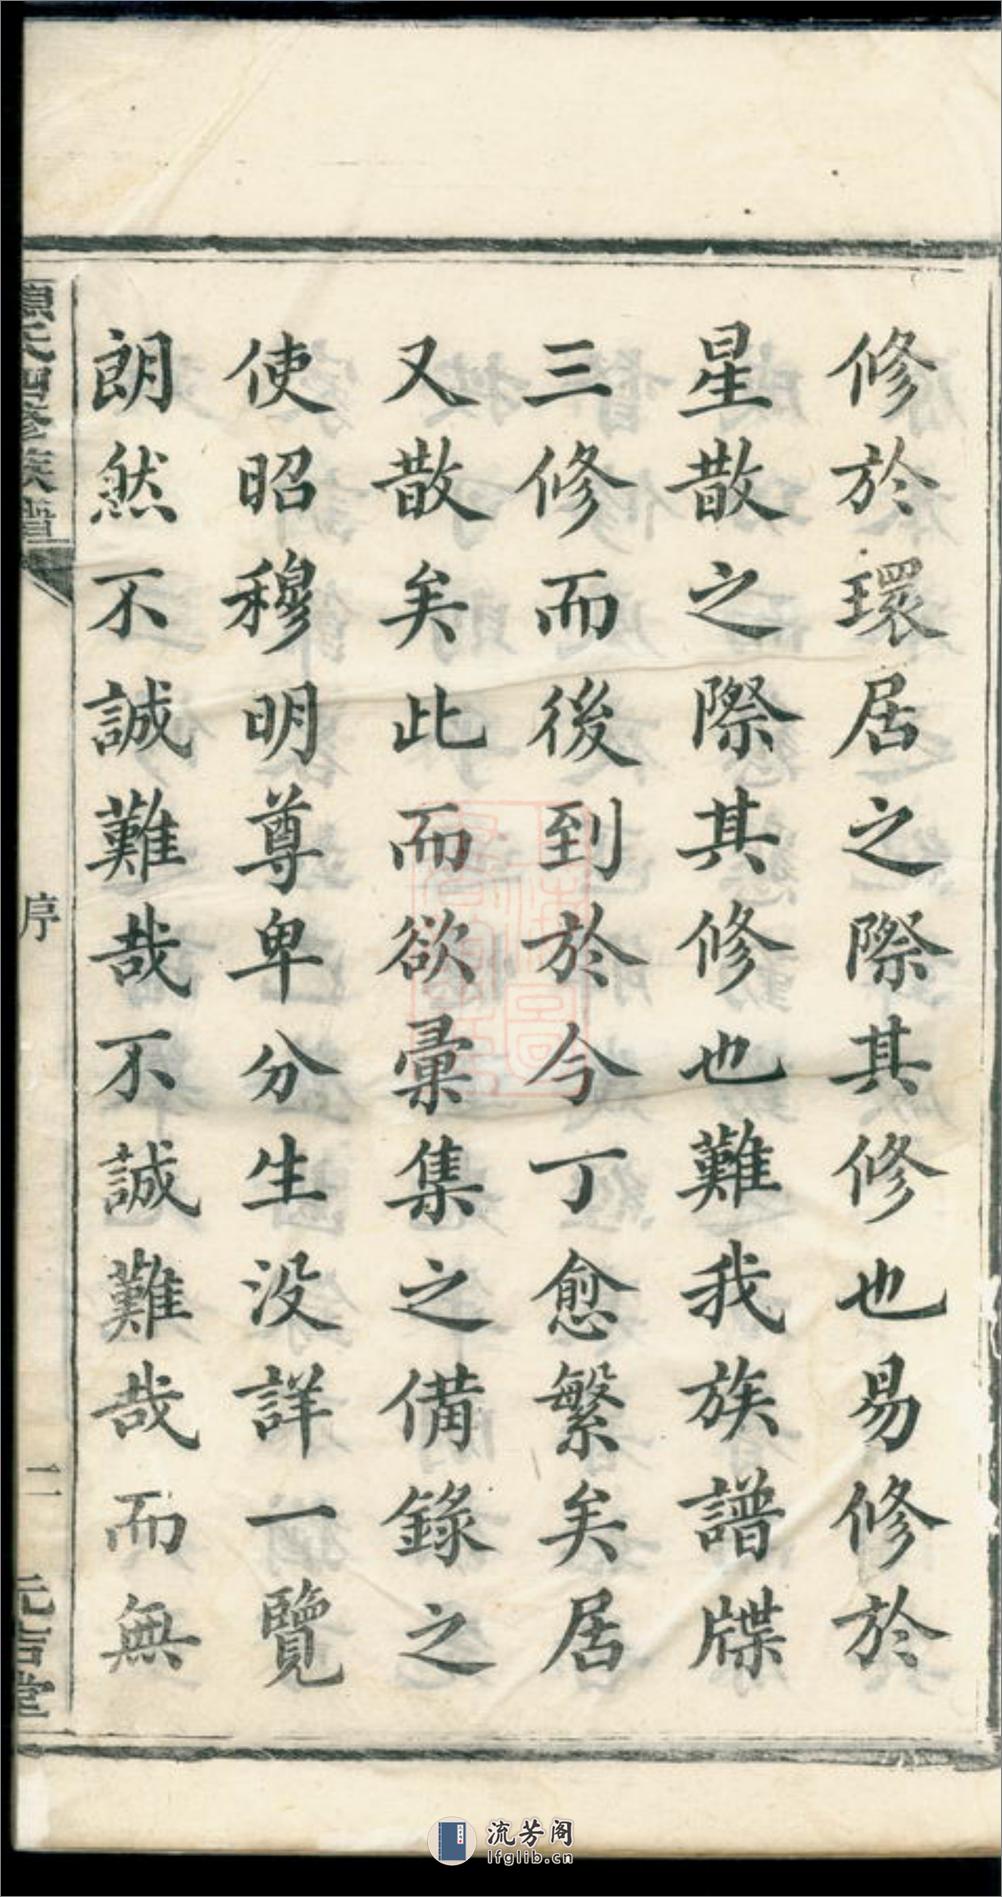 修於環居之際其修也易修於
星散之際其修也難我族譜牒
三修而後到於今丁愈繁矣居
又散矣此而欲彙集之備錄之
使昭穆明尊卑分生没詳一覽
朗然不誠難哉不誠難哉而無
氏四修族譜
序
二
堂
流芳阁
lfglib.cn